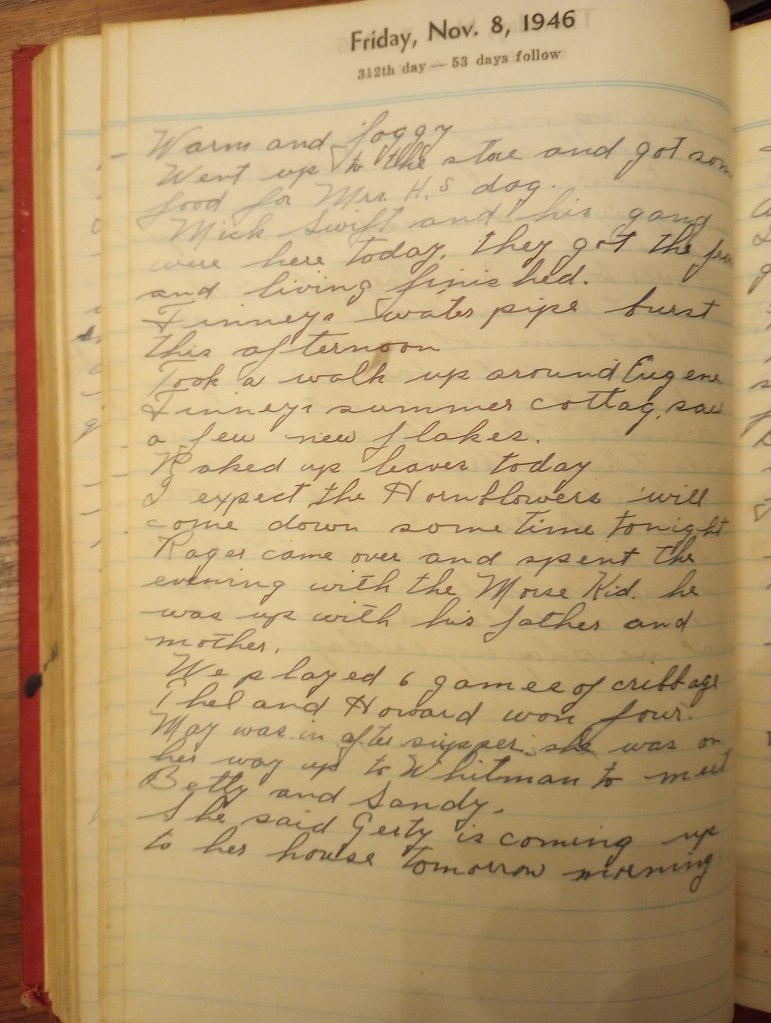 Friday, Nov. 8, 1946
312th day — 53 days follow
Warm and foggy
Went up to the store and got som
food for Mrs. H.s dog.
Mick Swift and his gang
were here today, they got the
and living finished.
Finneys water pipe burst
this afternoon
Took a walk up around Eugene
Finneys summer cottag, saw
a few new flakes.
Raked up leaves today
I expect the Hornblowers will
come down some time tonight
Roger came over and spent the
evening with the Morse Kid. he
was up with his father and
mother.
We played 6 games of cribbage
Thel and Howard won four.
May was in after supper, she was on
her way up to Whitman to meet
Betty and Sandy.
She said Gerty is coming up
to her house tomorrow morning.